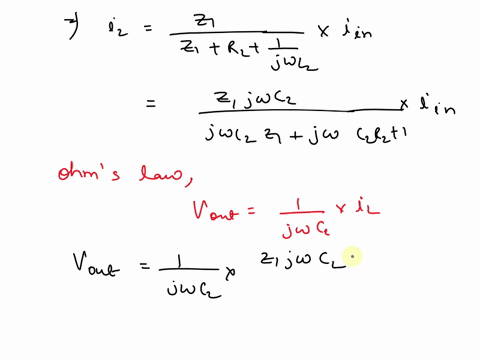 ⇒ i₂ = Z₁ / (Z₁ + R₂ + 1/(jωC₂)) × i_in
= Z₁ jωC₂ / (jωC₂ Z₁ + jω C₂R₂+1) × i_in
Ohm's law,
V_out = 1/(jωC₂) × i₂
V_out = 1/(jωC₂) × Z₁ jωC₂